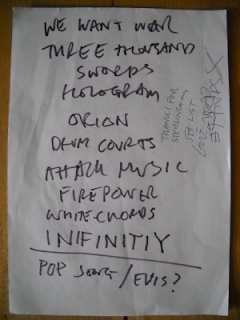 WE WANT WAR
THREE THOUSAND
SWORDS
HOLOGRAM
ORION
DRUM COURTS
ATTACK MUSIC
FIREPOWER
WHITE CHORDS
INIFINITIY
POP /
THANKS FOR
SET LIST